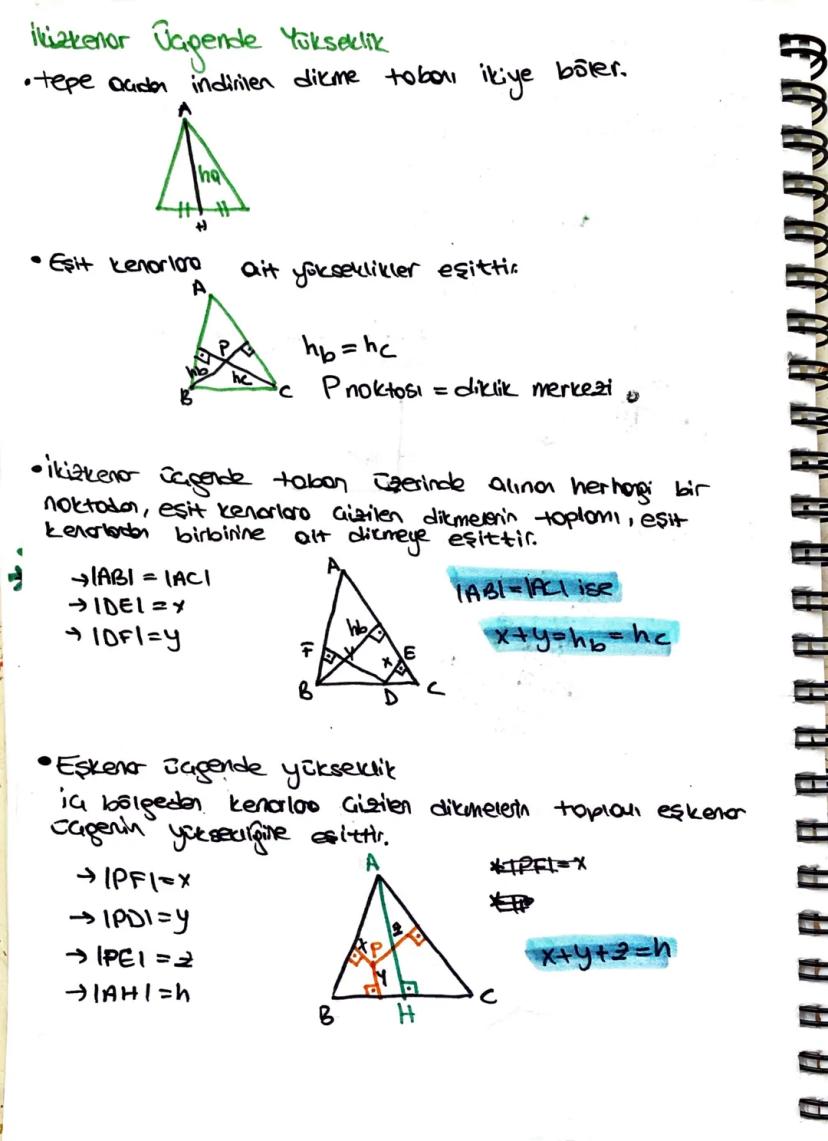 İkizkenar Üçgende Yükseklik
• tepe açıdan indirilen dikme tabanı ikiye böler.
A
ha
H
• Eşit kenarlara ait yükseklikler eşittir.
A
P
hb
hc
B
C
hb = hc
P noktası = diklik merkezi
• İkizkenar üçgende taban üzerinde alınan herhagi bir
noktadan, eşit kenarlara çizilen dikmelerin toplamı, eşit
kenarlardan birbirine ait dikmeye eşittir.
→ |AB| = |AC|
→ |DE| = x
→ |DF| = y
A
hb
F
y
x
E
B
D
C
|AB| = |AC| ise
x+y=hb=hc
• Eşkenar üçgende yükseklik
iç bölgeden kenarlara çizilen dikmelerin toplamı eşkenar
üçgenin yüksekliğine eşittir.
→ |PF| = x
→ |PD| = y
→ |PE| = z
→ |AH| = h
A
x
P
z
y
B
H
C
* |PF| = x
x+y+z=h